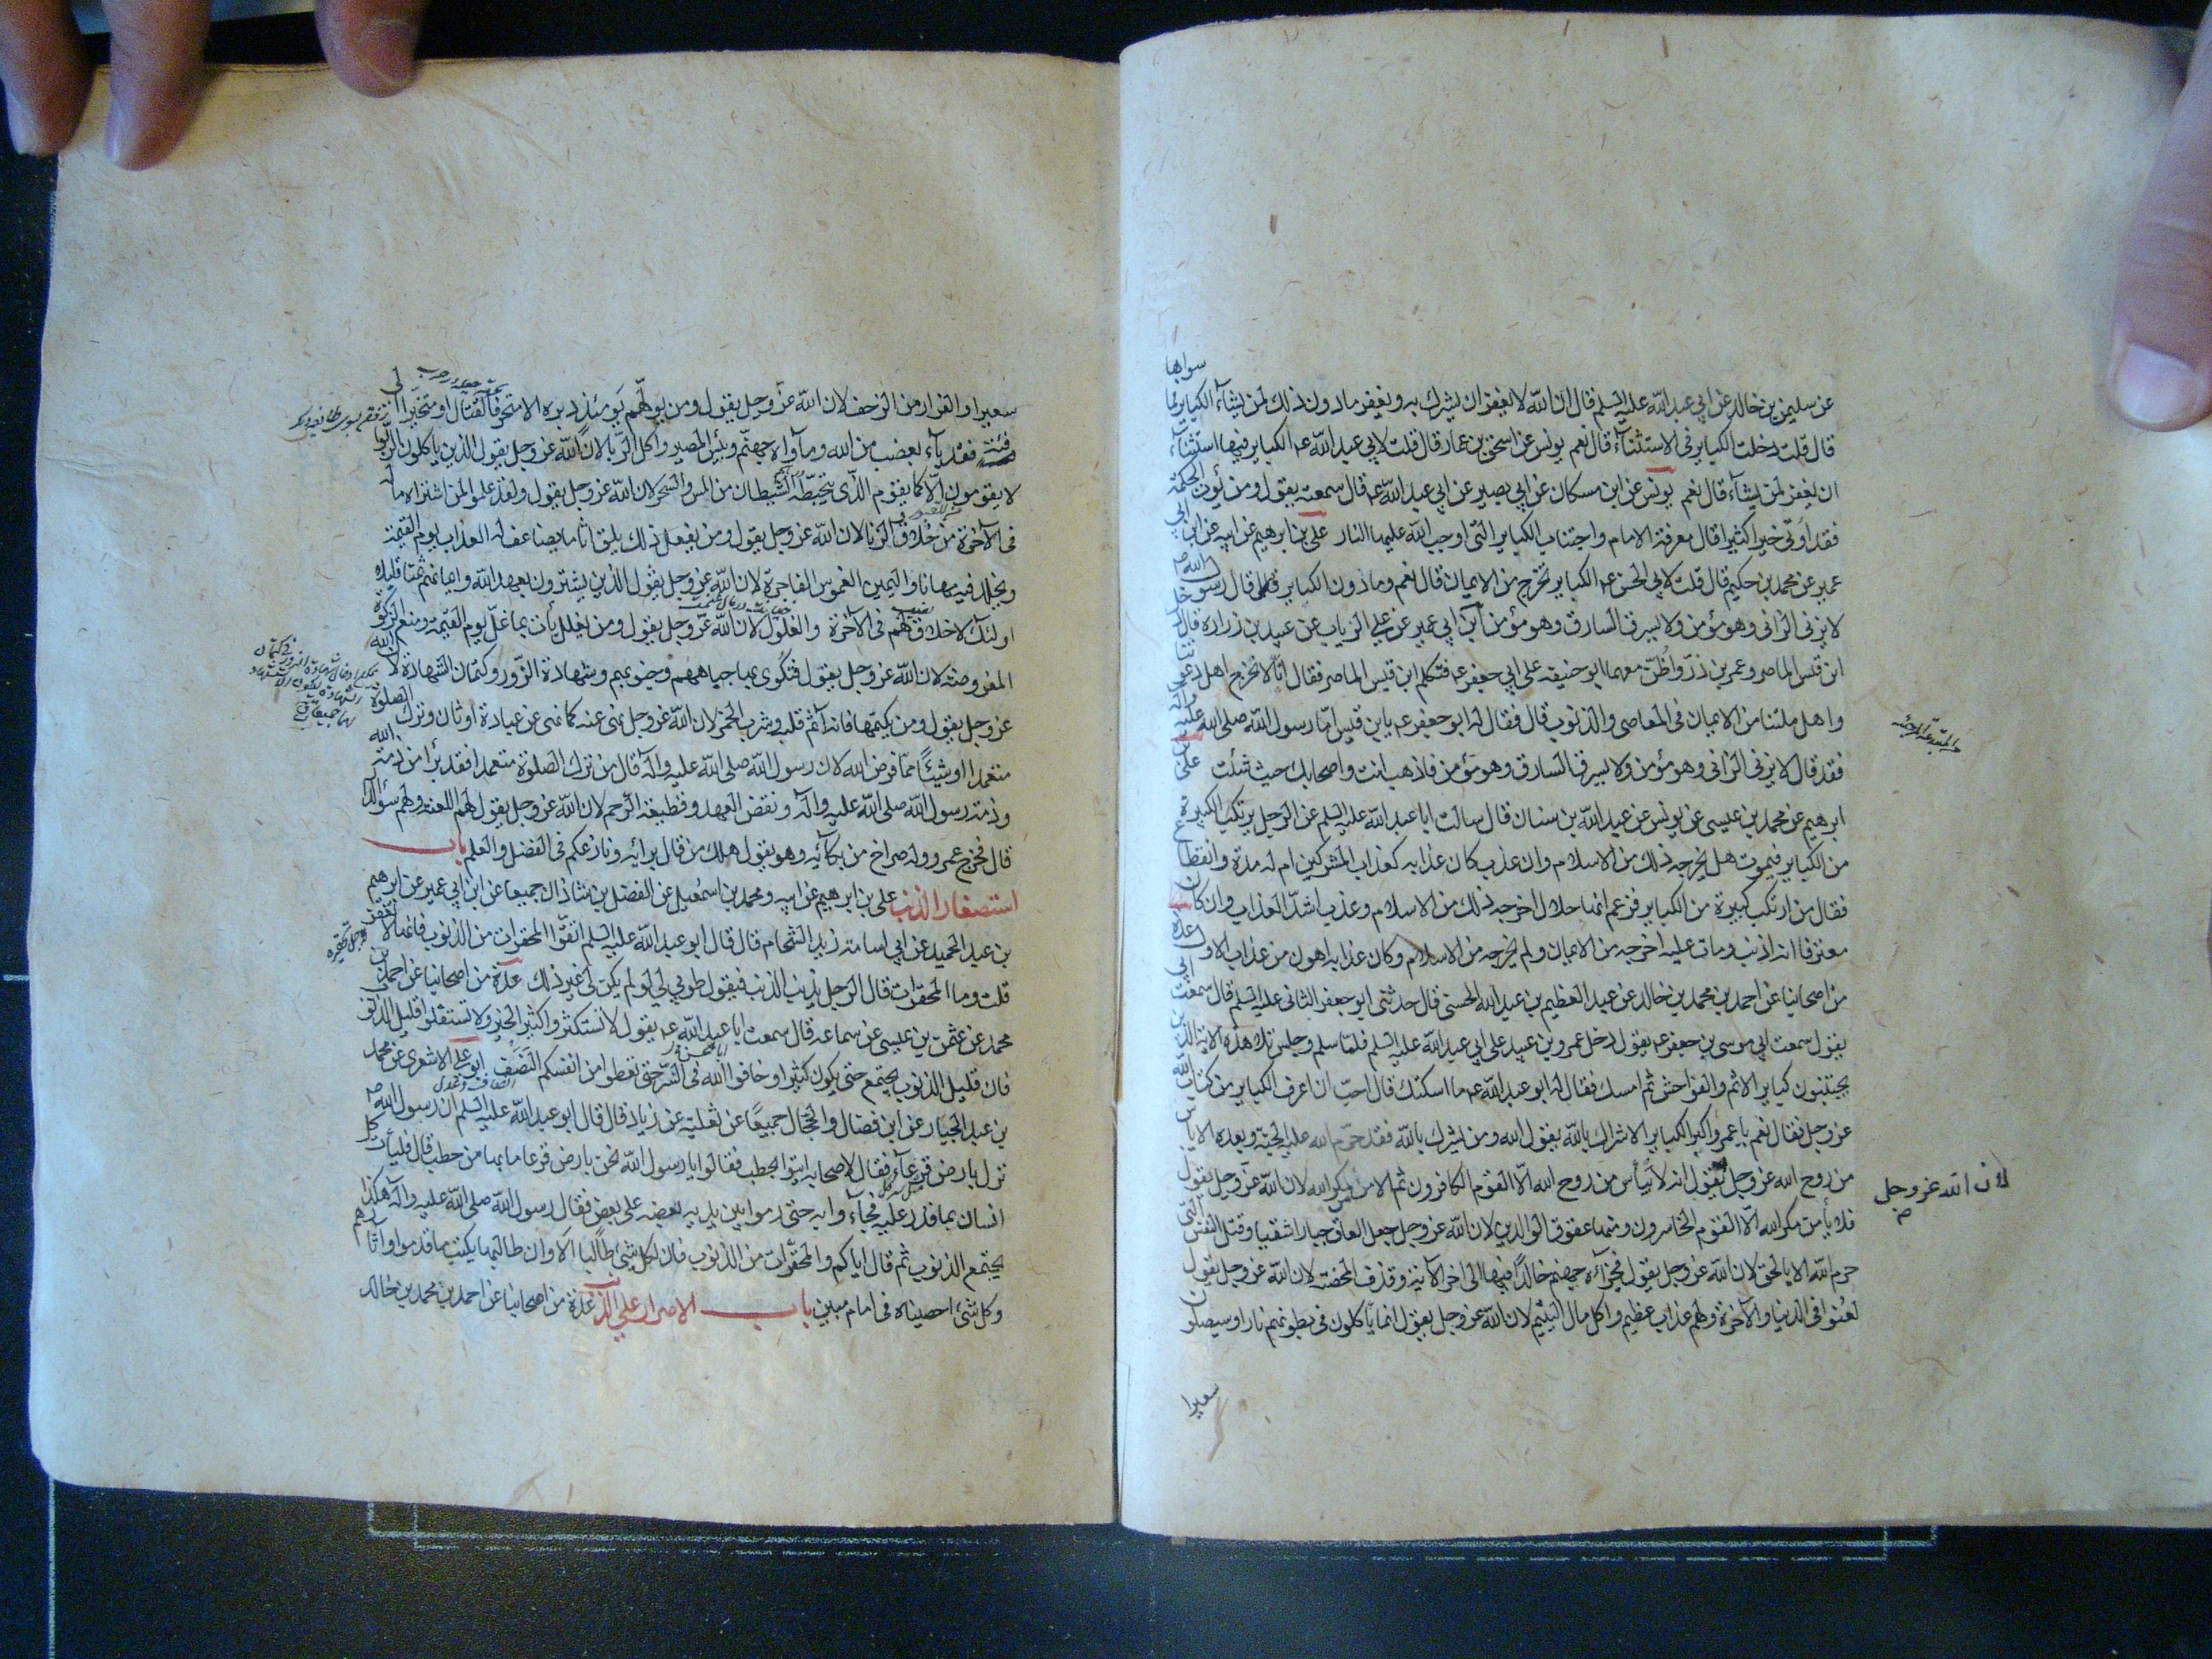 عن سليمن بن خالد عن ابي عبد الله عليه السلم قال ان الله لا يغفر ان يشرك به ويغفر ما دون ذلك لمن يشآء الكباير فما سواها
قال قلت دخلت الكباير في الاستثنآء قال نعم يونس عن اسحق بن عمار قال قلت لابي عبد الله ع الكباير فيها استثنآء
ان يغفر لمن يشآء قال نعم يونس عن ابن مسكان عن ابي بصير عن ابي عبد الله ع قال سمعته يقول ومن يؤت الحكمة
فقد اوتي خيرا كثيرا قال معرفة الامام واجتناب الكباير التي اوجب الله عليها النار علي بن ابرهيم عن ابيه عن ابن ابي
عمير عن محمد بن حكيم قال قلت لابي الحسن ع الكباير تخرج من الايمان قال نعم وما دون الكباير قال رسول الله ص
لا يزني الزاني وهو مؤمن ولا يسرق السارق وهو مؤمن ابن ابي عمير عن علي الزيات عن عبيد بن زرارة قال دخل
ابن قيس الماصر وعمر بن ذر واظن معهما ابو حنيفه على ابي جعفر ع فتكلم ابن قيس الماصر فقال انا لا نخرج اهل دعوتنا
واهل ملتنا من الايمان في المعاصي والذنوب قال فقال له ابو جعفر ع يا بن قيس اما رسول الله صلى الله عليه واله
فقد قال لا يزني الزاني وهو مؤمن ولا يسرق السارق وهو مؤمن فاذهب انت واصحابك حيث شئت علي بن
ابرهيم عن محمد بن عيسى عن يونس عن عبد الله بن سنان قال سالت ابا عبد الله عليه السلم عن الرجل يرتكب الكبيرة
من الكباير فيموت هل يخرجه ذلك من الاسلام وان عذب كان عذابه كعذاب المشركين ام له مدة وانقطاع
فقال من ارتكب كبيرة من الكباير فزعم انها حلال اخرجه ذلك من الاسلام وعذب اشد العذاب وان كان
معترفا انه اذنب ومات عليه اخرجه من الايمان ولم يخرجه من الاسلام وكان عذابه اهون من عذاب الاول عدة
من اصحابنا عن احمد بن محمد بن خالد عن عبد العظيم بن عبد الله الحسني قال حدثني ابو جعفر الثاني عليه السلم قال سمعت ابي
يقول سمعت ابي موسى بن جعفر ع يقول دخل عمرو بن عبيد على ابي عبد الله عليه السلم فلما سلم وجلس تلا هذه الاية الذين
يجتنبون كباير الاثم والفواحش ثم امسك فقال له ابو عبد الله ع ما اسكتك قال احب ان اعرف الكباير من كتاب الله
عز وجل فقال نعم يا عمرو اكبر الكباير الاشراك بالله يقول الله ومن يشرك بالله فقد حرم الله عليه الجنة وبعده الاياس
من روح الله عز وجل يقول انه لا ييأس من روح الله الا القوم الكافرون ثم الامن لمكر الله لان الله عز وجل يقول
لان الله عز وجل
فلا يأمن مكر الله الا القوم الخاسرون ومنها عقوق الوالدين لان الله عز وجل جعل العاق جبارا شقيا وقتل النفس التي
حرم الله الا بالحق لان الله عز وجل يقول فجزآؤه جهنم خالدا فيها الى اخر الاية وقذف المحصنة لان الله عز وجل يقول
لعنوا في الدنيا والاخرة ولهم عذاب عظيم واكل مال اليتيم لان الله عز وجل يقول انما ياكلون في بطونهم نارا وسيصلون
سعيرا
سعيرا والفرار من الزحف لان الله عز وجل يقول ومن يولهم يومئذ دبره الا متحرفا لقتال او متحيزا الى
فئة فقد بآء بغضب من الله ومأواه جهنم وبئس المصير واكل الربا لان الله عز وجل يقول الذين ياكلون الربوا
لا يقومون الا كما يقوم الذي يتخبطه الشيطان من المس والسحر لان الله عز وجل يقول ولقد علموا لمن اشتراه ما له
في الآخرة من خلاق والزنا لان الله عز وجل يقول ومن يفعل ذلك يلق اثاما يضاعف له العذاب يوم القيمة
ويخلد فيه مهانا واليمين الغموس الفاجرة لان الله عز وجل يقول الذين يشترون بعهد الله وايمانهم ثمنا قليلا
اولئك لا خلاق لهم في الآخرة والغلول لان الله عز وجل يقول ومن يغلل يأت بما غل يوم القيمة ومنع الزكوة
المفروضة لان الله عز وجل يقول فتكوى بها جباههم وجنوبهم وشهادة الزور وكتمان الشهادة لان الله
عز وجل يقول ومن يكتمها فانه آثم قلبه وشرب الخمر لان الله عز وجل نهى عنه كما نهى عن عبادة الاوثان وترك الصلوة
متعمدا او شيئا مما فرض الله لان رسول الله صلى الله عليه واله قال من ترك الصلوة متعمدا فقد برأ من ذمة الله
وذمة رسول الله صلى الله عليه واله ونقض العهد وقطيعة الرحم لان الله عز وجل يقول لهم اللعنة ولهم سوء الدار
قال فخرج عمرو وله صراخ من بكآئه وهو يقول هلك من قال برايه ونازعكم في الفضل والعلم باب
استصغار الذنب علي بن ابرهيم عن ابيه ومحمد بن اسمعيل عن الفضل بن شاذان جميعا عن ابن ابي عمير عن ابرهيم
بن عبد الحميد عن ابي اسامة زيد الشحام قال قال ابو عبد الله عليه السلم اتقوا المحقرات من الذنوب فانها لا تغفر
قلت وما المحقرات قال الرجل يذنب الذنب فيقول طوبى لي لو لم يكن لي غير ذلك عدة من اصحابنا عن احمد بن
محمد عن عثمن بن عيسى عن سماعة قال سمعت ابا عبد الله ع يقول لا تستكثروا كثير الخير ولا تستقلوا قليل الذنوب
فان قليل الذنوب يجتمع حتى يكون كثيرا وخافوا الله في السر حتى تعطوا من انفسكم النصف ابو علي الاشعري عن محمد
بن عبد الجبار عن ابن فضال والحجال جميعا عن ثعلبة عن زياد قال قال ابو عبد الله عليه السلم ان رسول الله ص
نزل بارض قرعآء فقال لاصحابه ايتوا بحطب فقالوا يا رسول الله نحن بارض قرعا ما بها من حطب قال فليأت كل
انسان بما قدر عليه فجآءوا به حتى رموا بين يديه بعضه على بعض فقال رسول الله صلى الله عليه واله هكذا
يجتمع الذنوب ثم قال اياكم والمحقرات من الذنوب فان لكل شئ طالبا الا وان طالبها يكتب ما قدموا واثارهم
وكل شئ احصيناه في امام مبين باب الاصرار على الذنب عدة من اصحابنا عن احمد بن محمد بن خالد